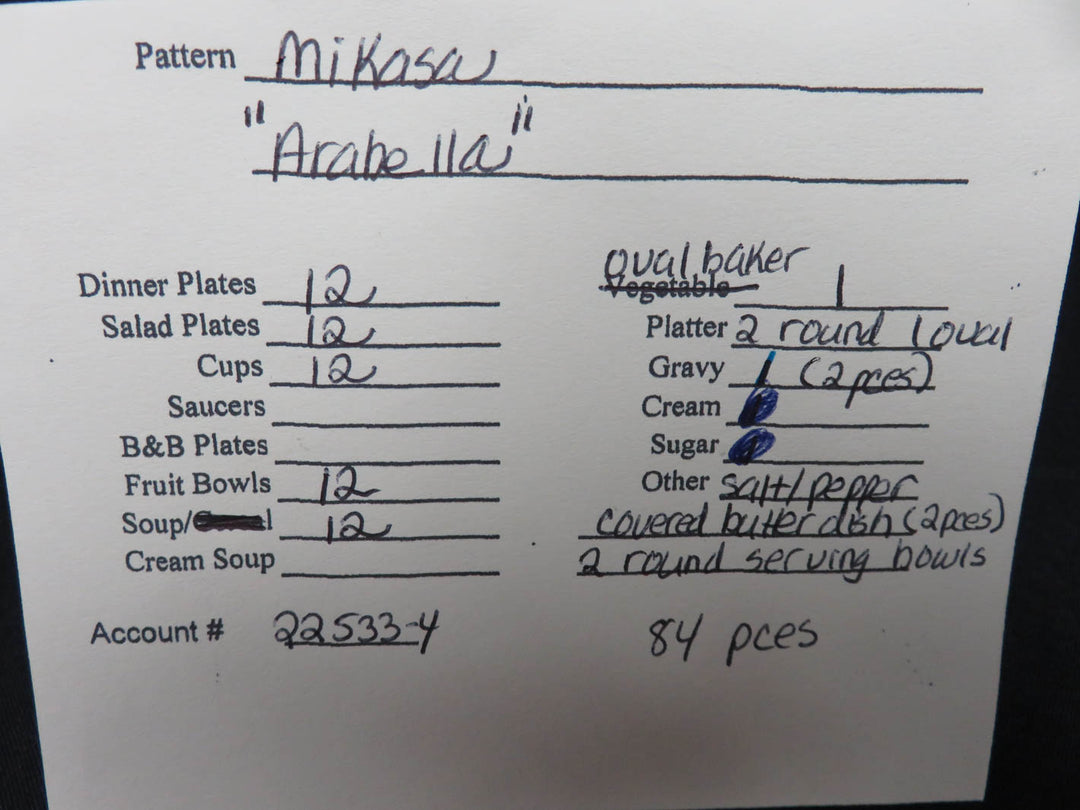 Pattern Mikasa
"Arabella"
Dinner Plates 12
Salad Plates 12
Cups 12
Saucers
B&B Plates
Fruit Bowls 12
Soup/ 12
Cream Soup
Account # 22533-4
oval baker
Vegetable 1
Platter 2 round 1 oval
Gravy 1 (2 pces)
Cream
Sugar
Other salt/pepper
covered butter dish (2 pces)
2 round serving bowls
84 pces